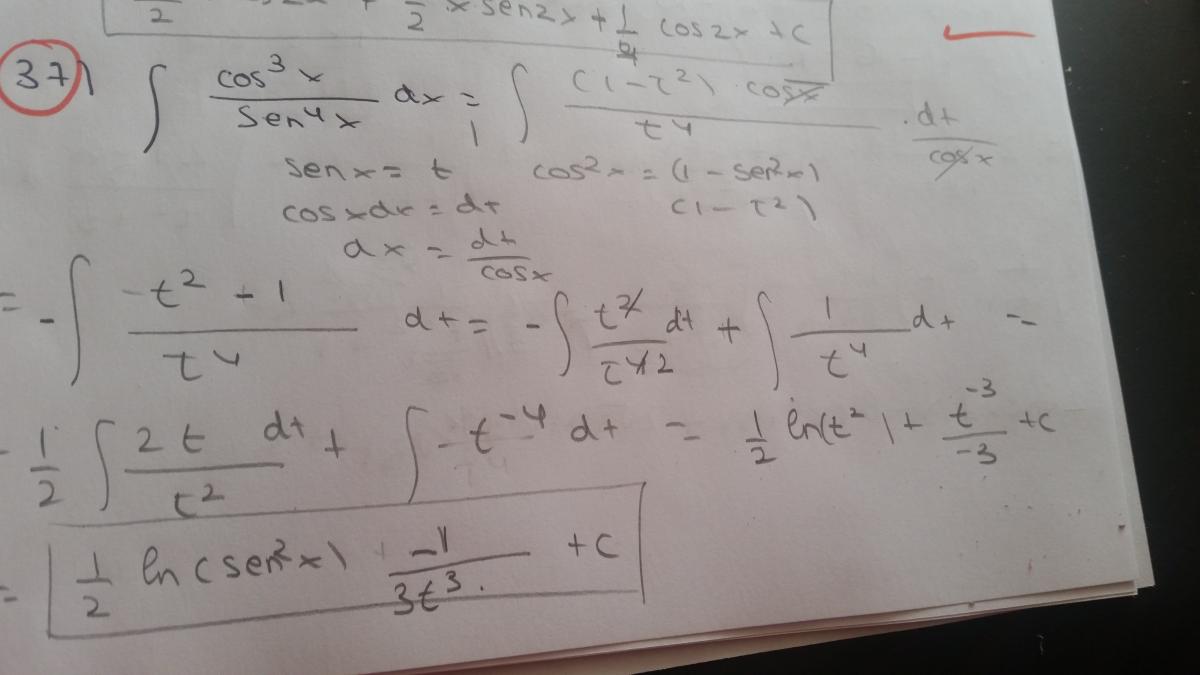 x sen2x + 1/4 cos2x + c
37) ∫ cos³x / sen⁴x dx = ∫ (1-t²) · cosx / t⁴ · dt / cosx
senx = t cos²x = (1 - sen²x)
cosxdx = dt (1 - t²)
dx = dt / cosx
= -∫ -t² - 1 / t⁴ dt = -∫ t² / t⁴ 2 dt + ∫ 1 / t⁴ dt =
1/2 ∫ 2t dt / t² + ∫ -t⁻⁴ dt = 1/2 ln(t²) + t⁻³ / -3 + c
= 1/2 ln(sen²x) -1 / 3t³. + c